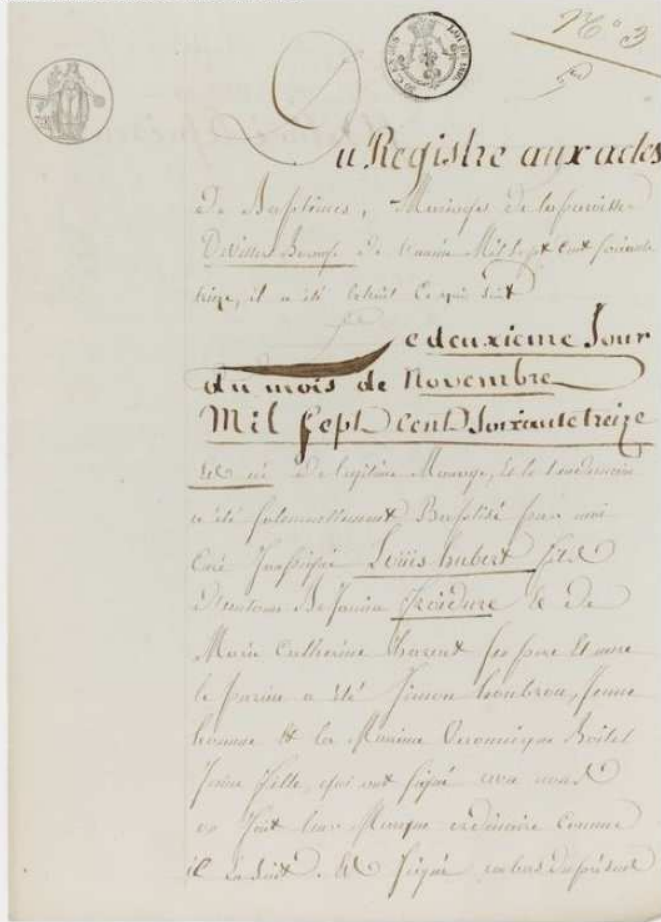 N° 3
Du Registre aux actes
de Baptêmes, Mariages de la paroisse
De Villers de l'année Mil Sept Cent soixante
treize, il a été Extrait Ce qui suit
Le deuxieme Jour
du mois de Novembre
Mil Sept Cent Soixante treize
Est né De legitime Mariage, et le lendemain
a été solennellement Baptisé par moi
Curé soussigné Louis hubert fils
D'antoine Benjamin froidure & De
Marie Catherine ses pere Et mere
le parrin a été Simon Jeune
homme & la Marinne Veronique Boitel
Jeune fille, qui ont signé avec nous
ou fait leur Marque ordinaire Comme
il En suit. Est signé au bas du présent